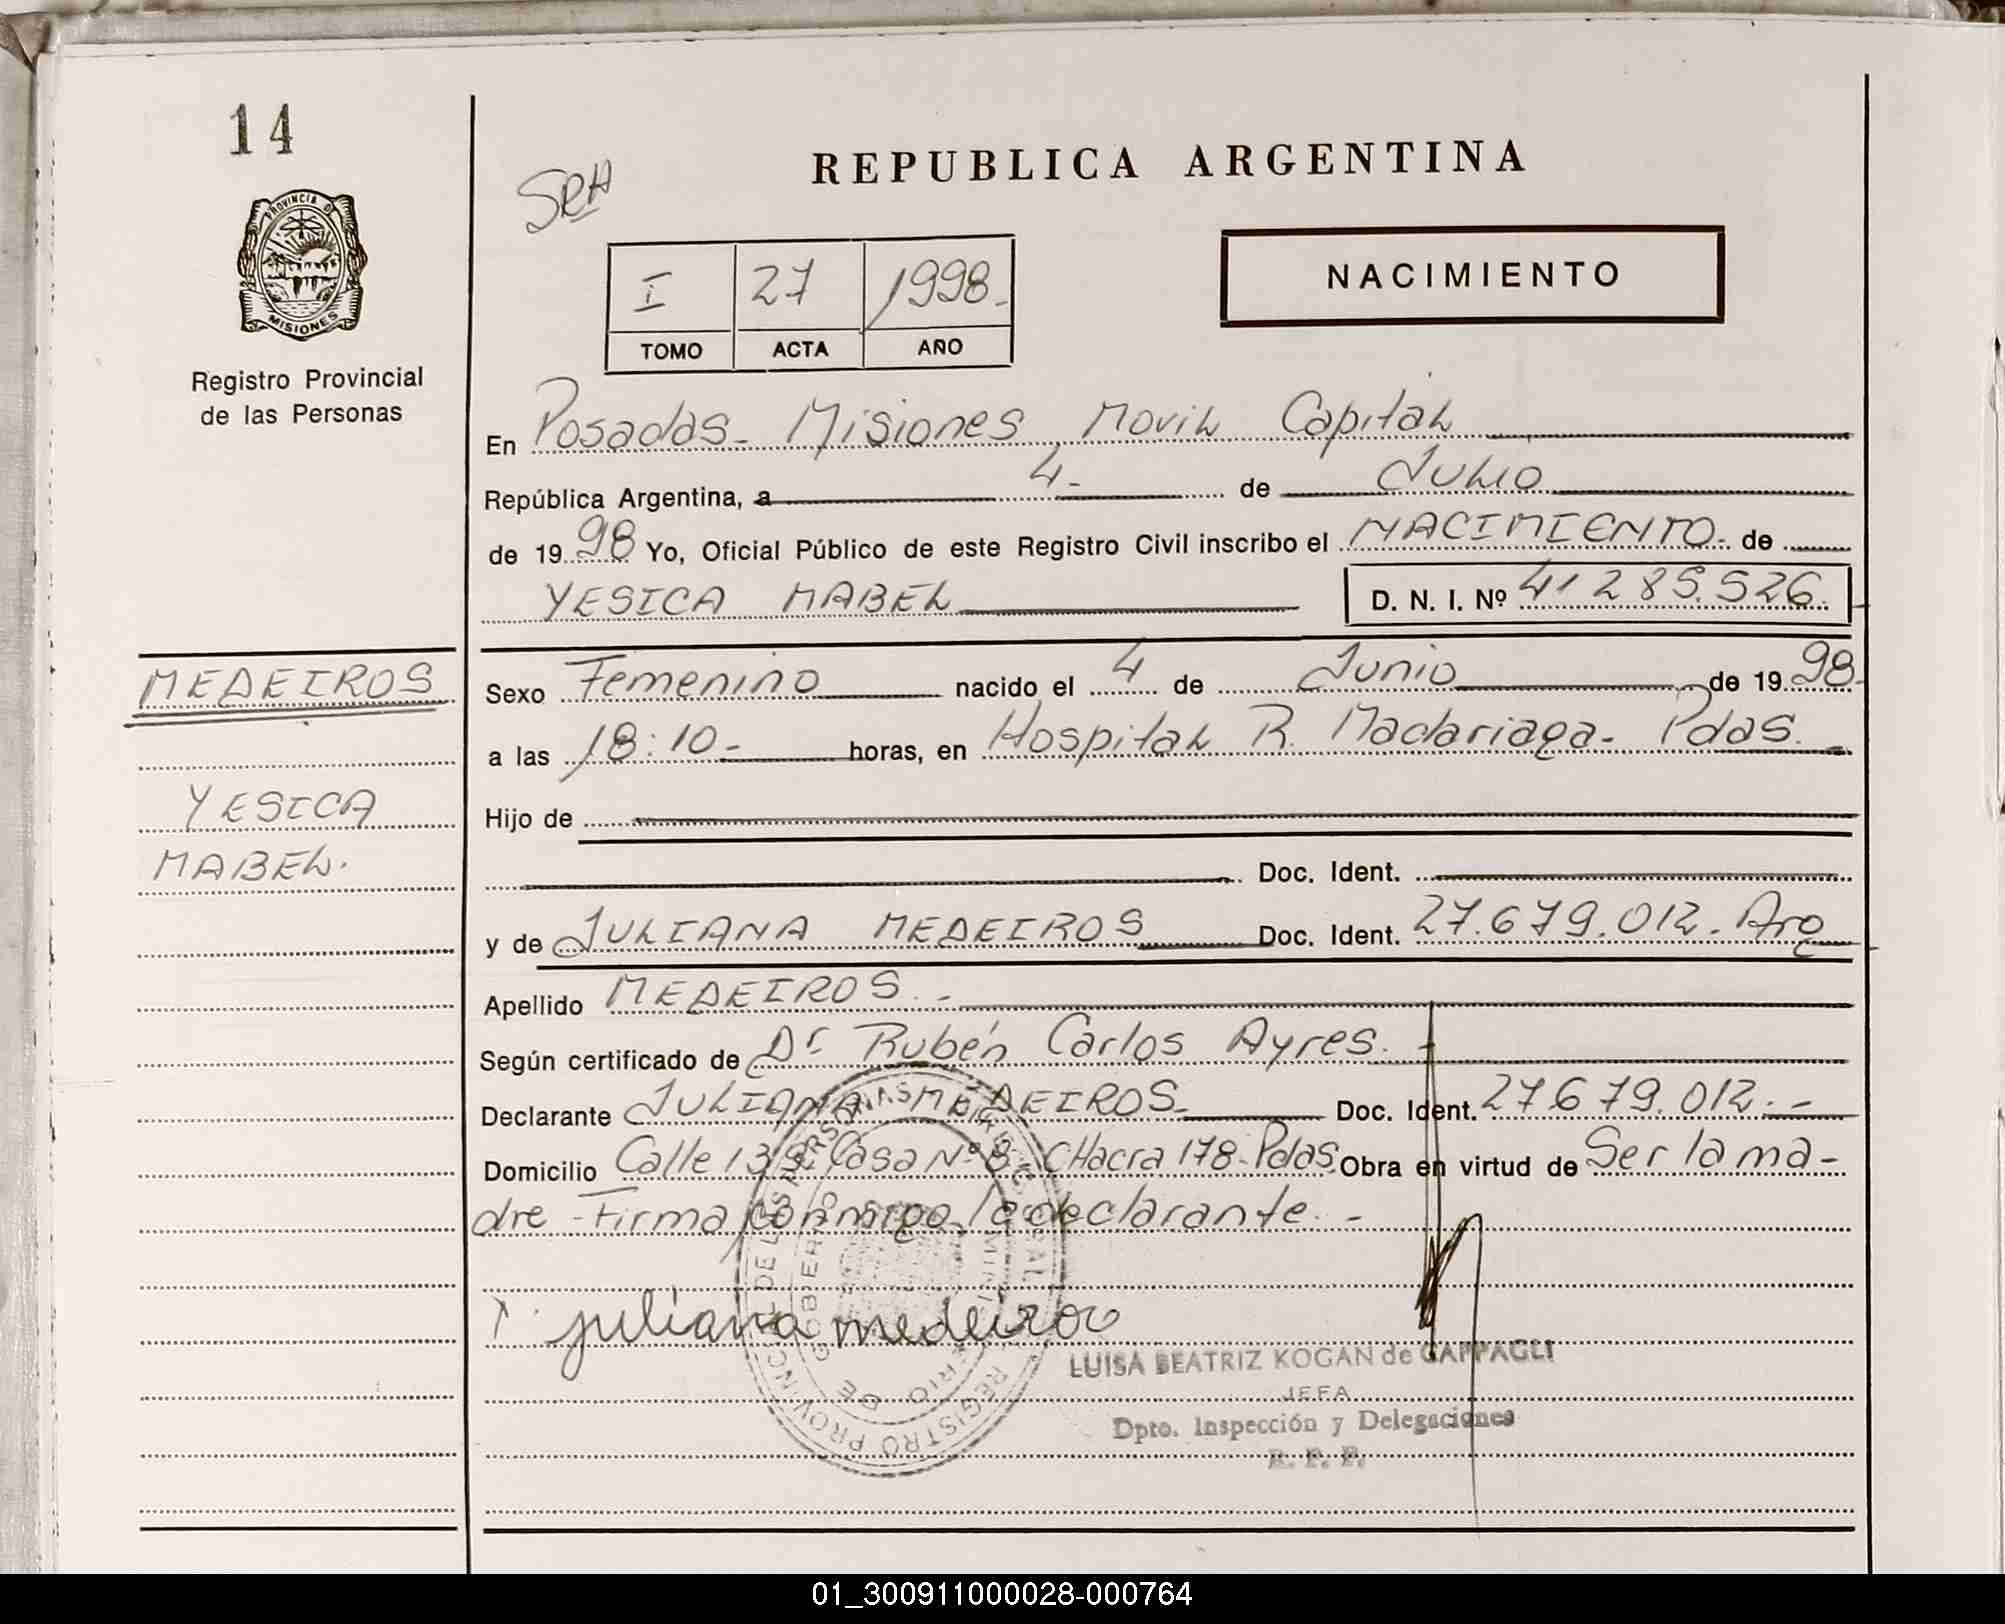 14
SRA
REPUBLICA ARGENTINA
PROVINCIA DE
MISIONES
I 27 1998.
TOMO ACTA AÑO
NACIMIENTO
Registro Provincial
de las Personas
En Posadas - Misiones Movil Capital
República Argentina, a 4- de Julio
de 1998 Yo, Oficial Público de este Registro Civil inscribo el NACIMIENTO.- de
YESICA MABEL D. N. I. Nº 41 285.526.
MEDEIROS
Sexo Femenino nacido el 4 de Junio de 1998.
a las 18:10.- horas, en Hospital R. Madariaga - Pdas. -
YESICA
MABEL.
Hijo de
Doc. Ident.
y de JULIANA MEDEIROS Doc. Ident. 27.679.012. Arg
Apellido MEDEIROS. -
Según certificado de Dr Rubén Carlos Ayres. -
Declarante JULIANA MEDEIROS - Doc. Ident. 27679.012. - -
Domicilio Calle 139. Casa Nº 8 - CHacra 178 - Pdas. Obra en virtud de Ser la ma -
dre - Firma conmigo la declarante. -
juliana medeiros
LUISA BEATRIZ KOGAN de CAPPAGLI
JEFA
Dpto. Inspección y Delegaciones
R. P. P.
REGISTRO PROVINCIAL DE LAS PERSONAS
01_300911000028-000764